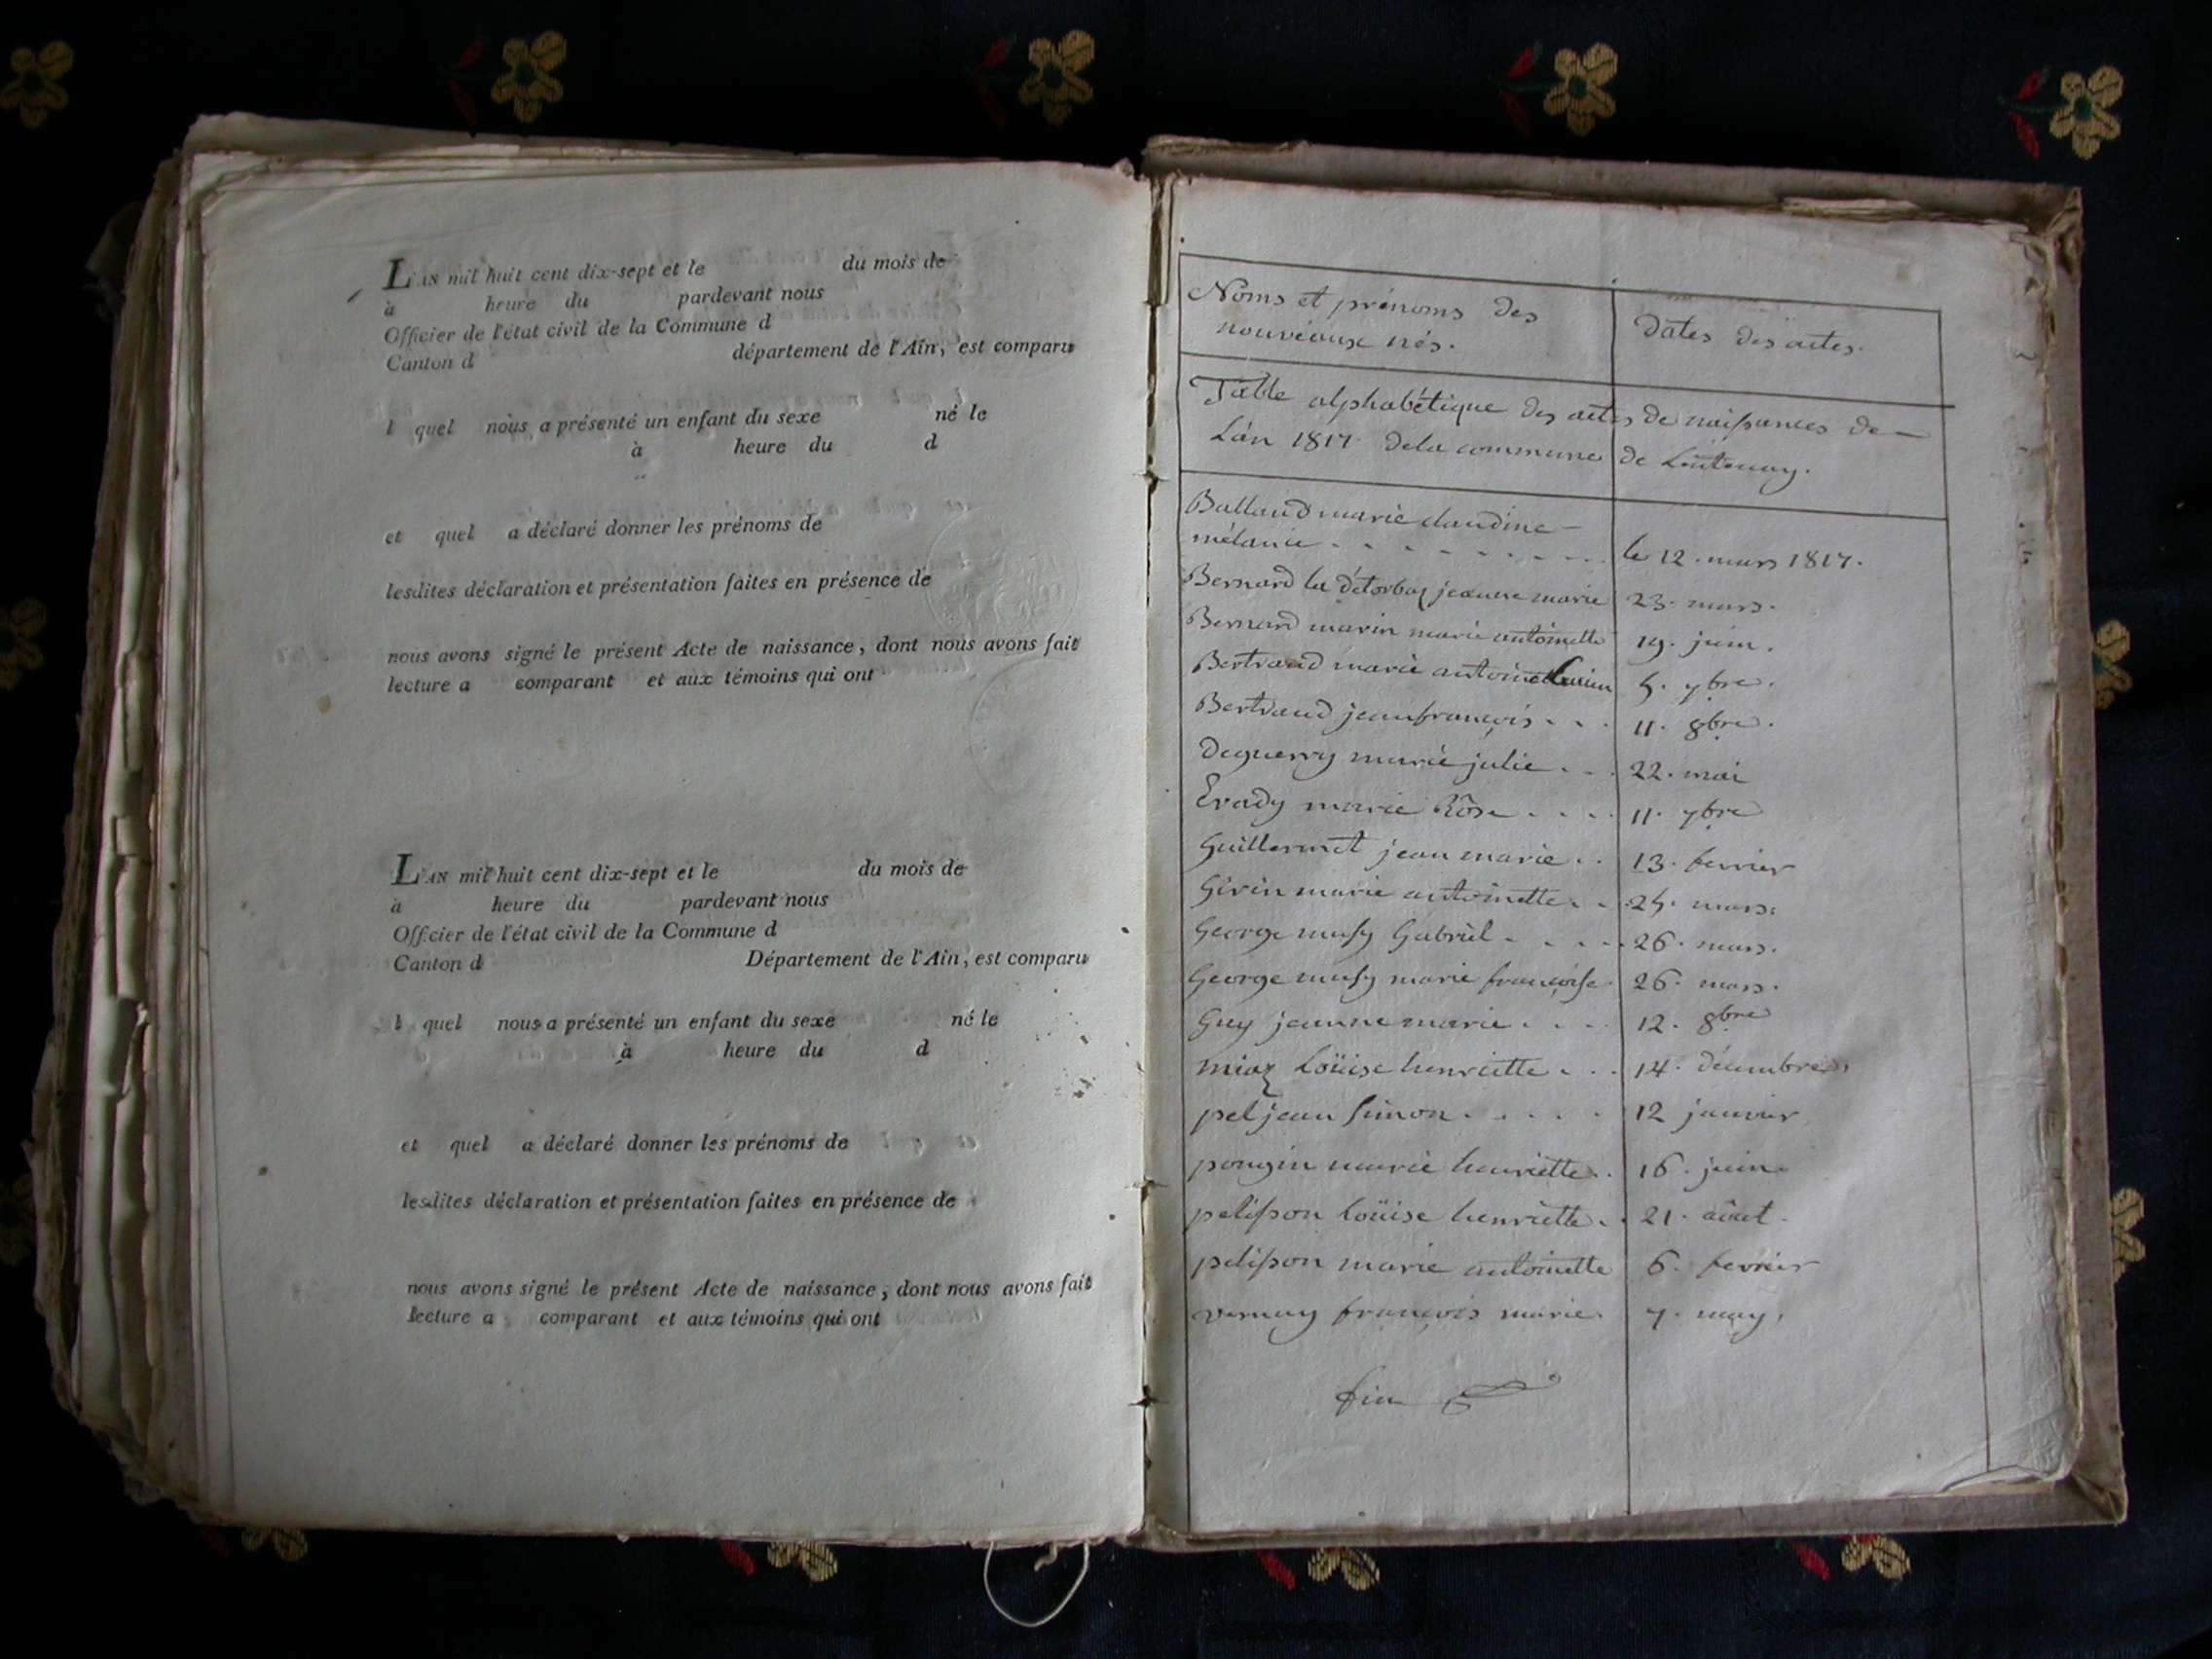 L'AN mil huit cent dix-sept et le du mois de
à heure du pardevant nous
Officier de l'état civil de la Commune d
Canton d département de l'Ain, est comparu
l quel nous a présenté un enfant du sexe né le
à heure du d
et quel a déclaré donner les prénoms de
lesdites déclaration et présentation faites en présence de
nous avons signé le présent Acte de naissance, dont nous avons fait
lecture a comparant et aux témoins qui ont
L'AN mil huit cent dix-sept et le du mois de
à heure du pardevant nous
Officier de l'état civil de la Commune d
Canton d Département de l'Ain, est comparu
l quel nous a présenté un enfant du sexe né le
à heure du d
et quel a déclaré donner les prénoms de
lesdites déclaration et présentation faites en présence de
nous avons signé le présent Acte de naissance, dont nous avons fait
lecture a comparant et aux témoins qui ont
Noms et prénoms des
nouveaux nés.
dates des actes.
Table alphabétique des actes de naissances de
L'an 1817 de la commune de Lantenay.
Balland marie claudine
mélanie le 12. mars 1817.
Bernard la jeanne marie 23. mars.
Bernard marin marie antoinette 19. juin.
Bertrand marie 5. 7bre.
Bertrand jean françois 11. 8bre.
Deguerry marie julie 22. mai
Evrady marie Rôse 11. 7bre
Guillermet jean marie 13. fevrier
Girin marie antoinette 25. mars.
George musy Gabriel 26. mars.
George musy marie françoise 26. mars.
Guy jeanne marie 12. 8bre
miaz Loüise henriette 14. décembre.
pel jean simon 12 janvier
pougin marie henriette 16. juin.
pelisson Loüise henriette 21. aôut.
pelisson marie antoinette 6. fevrier
vernay françois marie 7. may.
fin